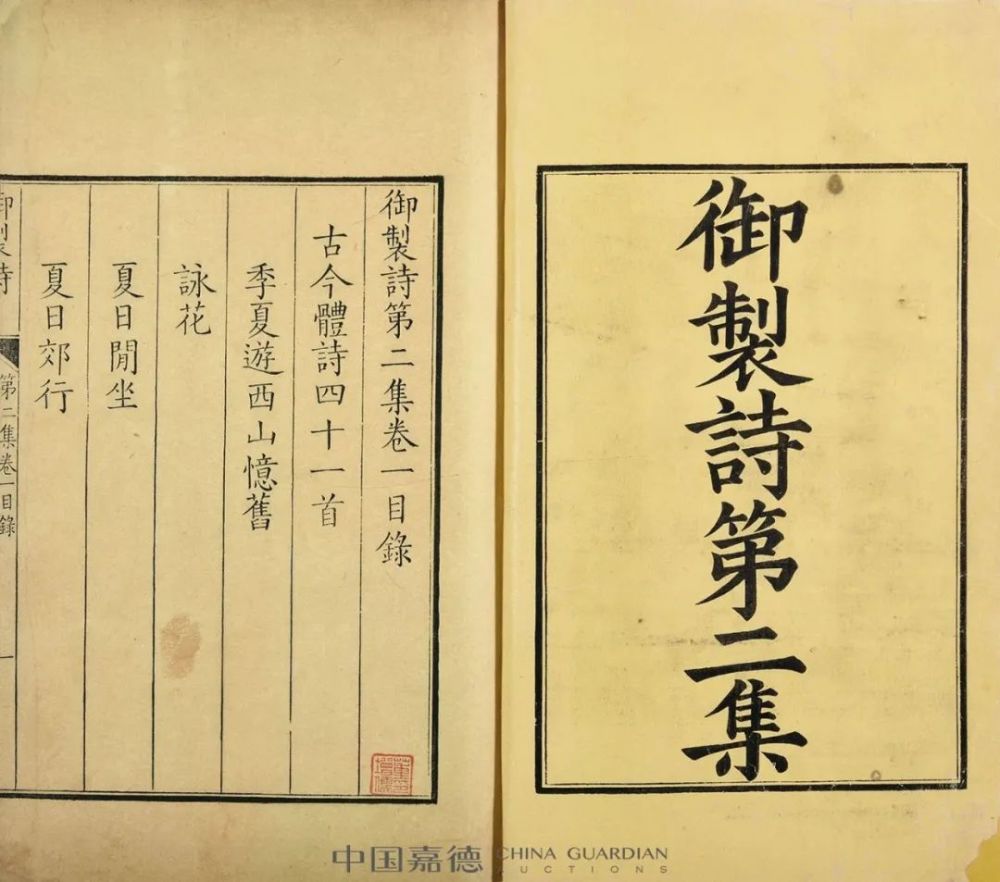 御製詩第二集
御製詩第二集卷一目錄
古今體詩四十一首
季夏遊西山憶舊
詠花
夏日閒坐
夏日郊行
御製詩
第二集卷一目錄
一
中国嘉德
CHINA GUARDIAN
AUCTIONS